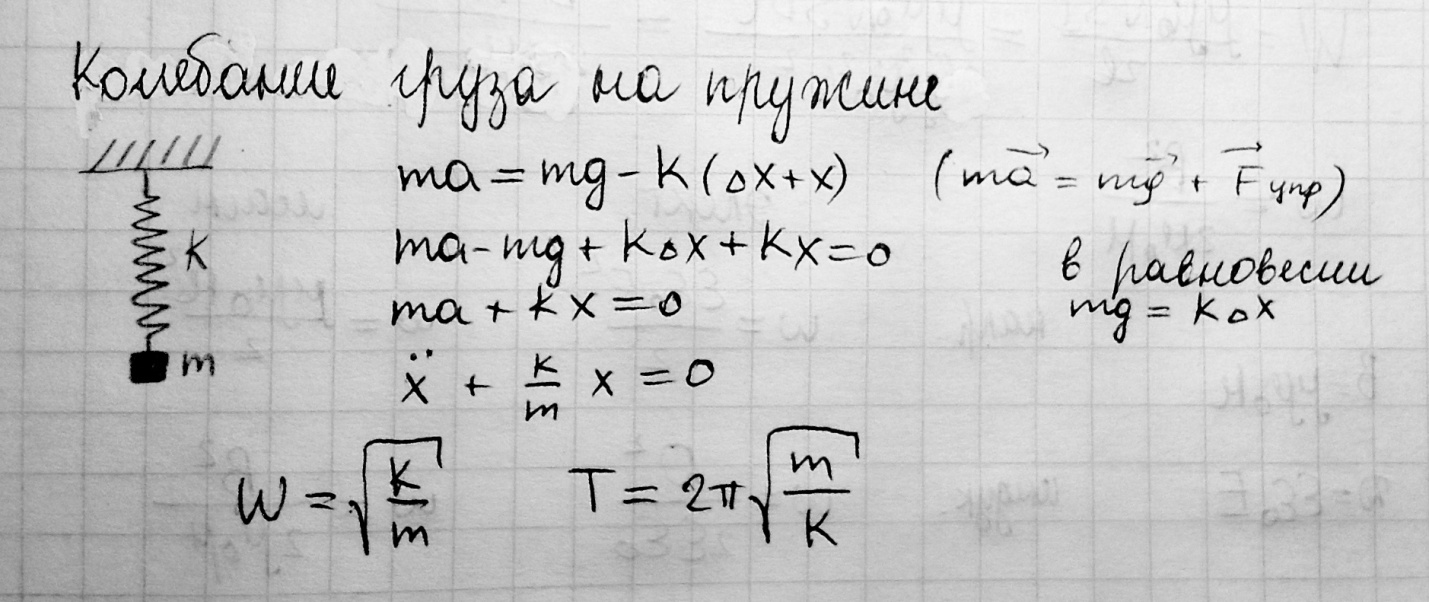 Колебание груза на пружине
ma = mg - k (Δx + x) (ma⃗ = mg⃗ + F⃗ упр)
ma - mg + kΔx + kx = 0
k
в равновесии
ma + kx = 0
mg = kΔx
m
ẍ + k/m x = 0
W = √(k/m) T = 2π√(m/k)